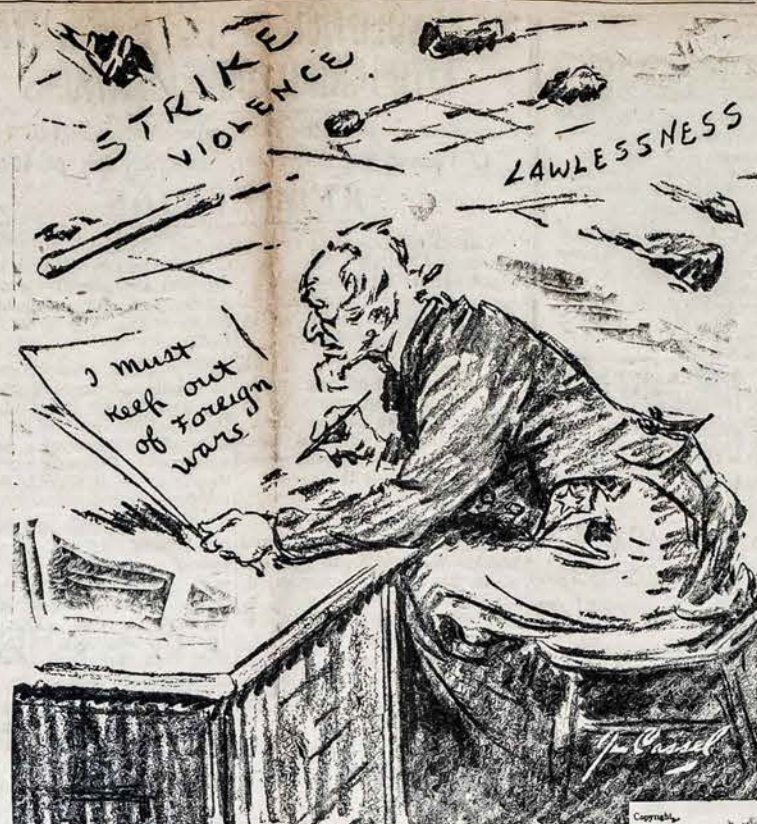 STRIKE
VIOLENCE.
LAWLESSNESS
I must
keep out
of Foreign
wars
Jn Cassel
Copyright,